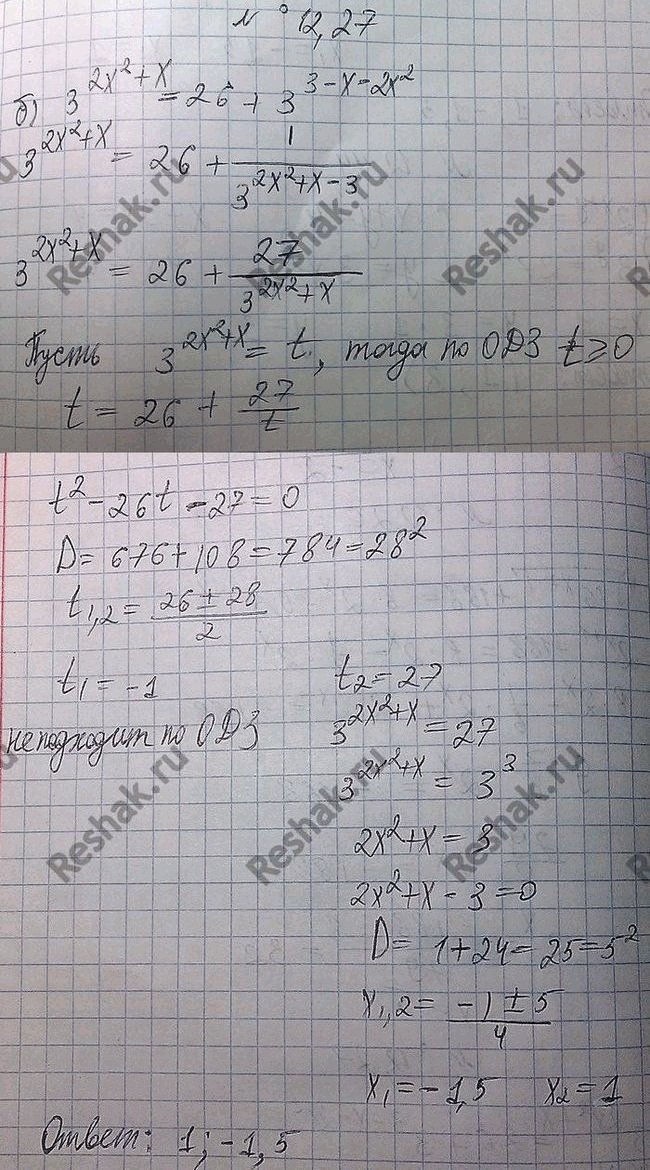 № 12,27
б) 3^{2x²+x} = 26 + 3^{3-x-2x²}
3^{2x²+x} = 26 + 1/3^{2x²+x-3}
3^{2x²+x} = 26 + 27/3^{2x²+x}
Пусть 3^{2x²+x} = t, тогда по ОДЗ t ≥ 0
t = 26 + 27/t
t² - 26t - 27 = 0
D = 676 + 108 = 784 = 28²
t₁,₂ = (26 ± 28)/2
t₁ = -1
не подходит по ОДЗ
t₂ = 27
3^{2x²+x} = 27
3^{2x²+x} = 3³
2x²+x = 3
2x²+x - 3 = 0
D = 1 + 24 = 25 = 5²
x₁,₂ = (-1 ± 5)/4
x₁ = -1,5 x₂ = 1
Ответ: 1; -1,5
Reshak.ru
Reshak.ru
Reshak.ru
Reshak.ru